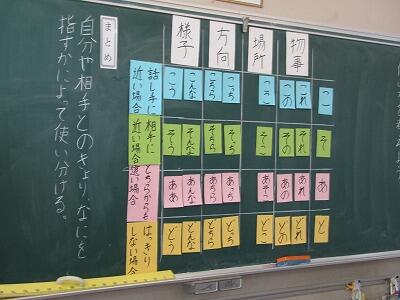 まとめ
自分や相手とのきょり、なにを
指すかによって使い分ける。
物事
場所
方向
様子
こ
これ
この
ここ
こっち
こちら
こんな
こう
話し手に
近い場合
そ
それ
その
そこ
そっち
そちら
そんな
そう
相手に
近い場合
あ
あれ
あの
あそこ
あっち
あちら
あんな
ああ
どちらからも
遠い場合
ど
どれ
どの
どこ
どっち
どちら
どんな
どう
はっきり
しない場合